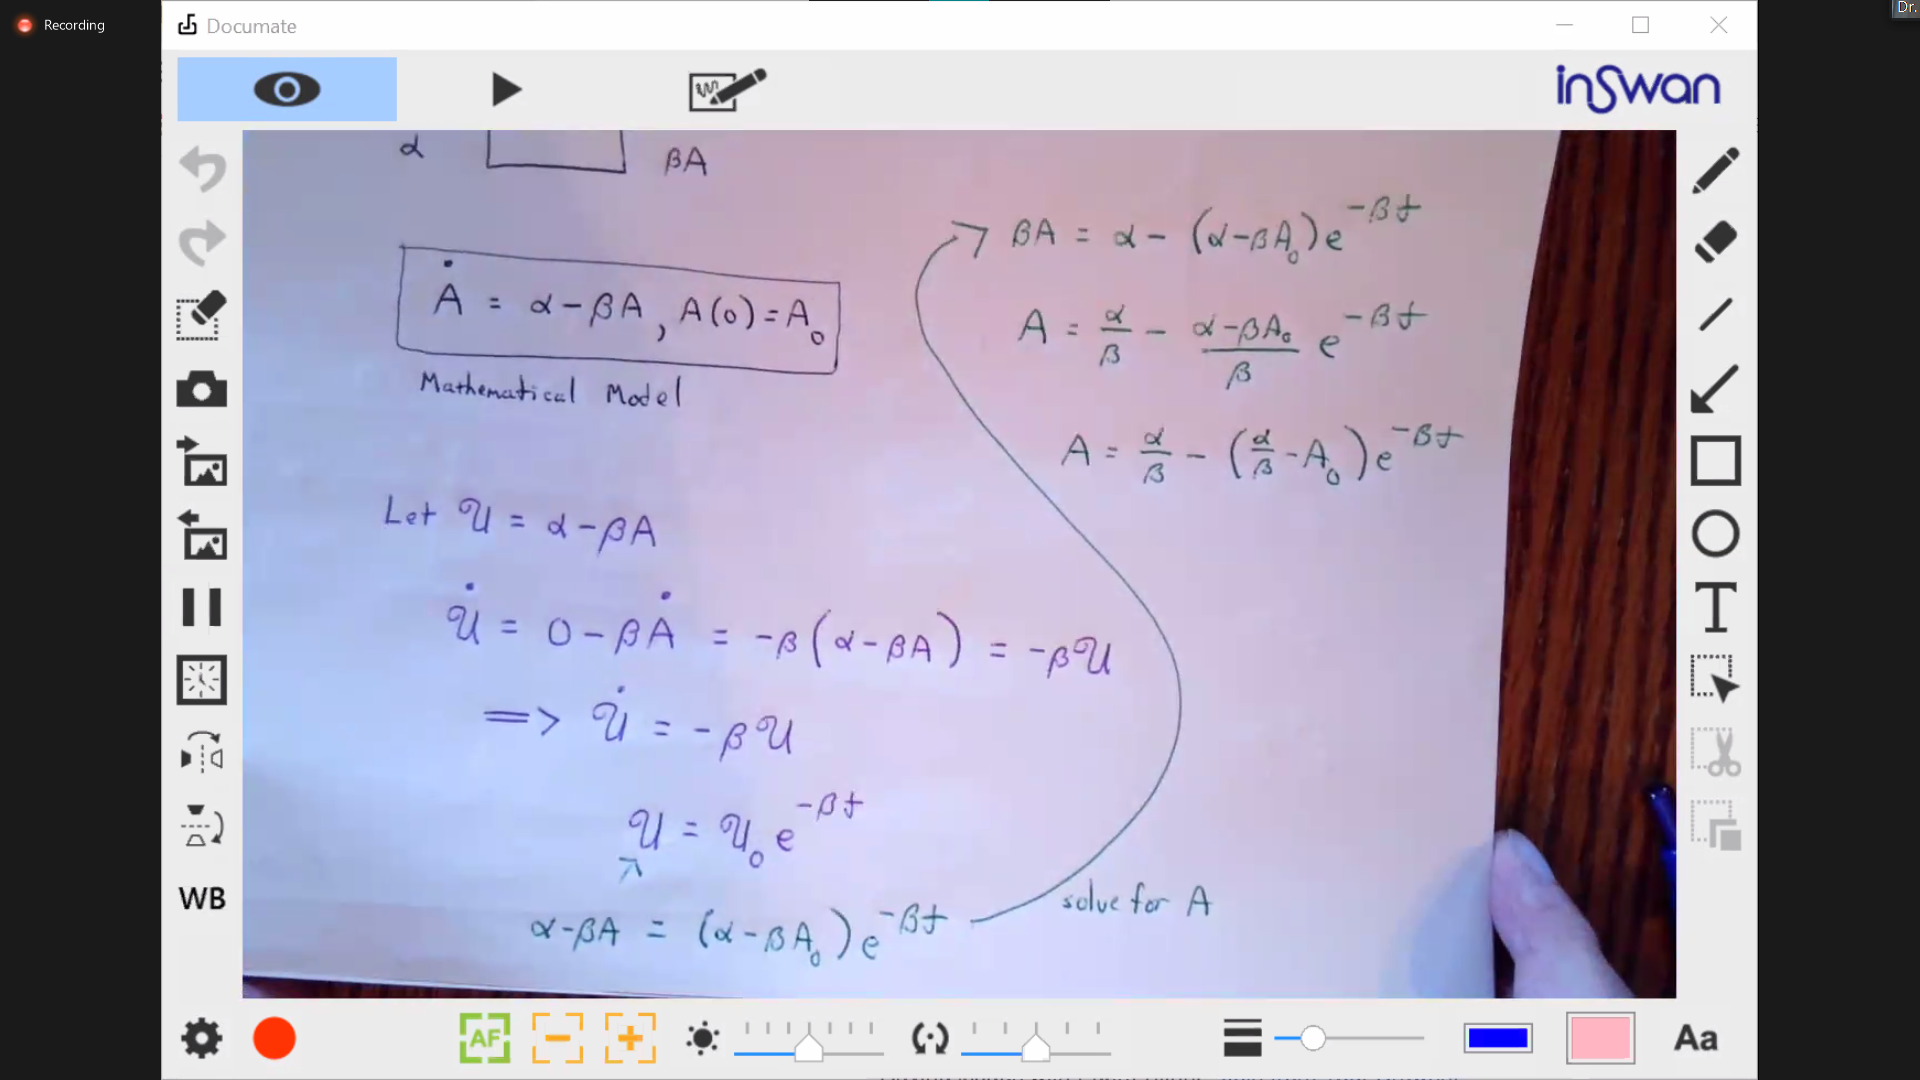 Recording
Dr.
Documate
inSwan
α
βA
Ȧ = α - βA, A(0) = A₀
Mathematical Model
Let U = α - βA
U̇ = 0 - βȦ = -β(α - βA) = -βU
=> U̇ = -βU
U = U₀ e^{-βt}
α - βA = (α - βA₀) e^{-βt}
solve for A
βA = α - (α - βA₀) e^{-βt}
A = α/β - (α - βA₀)/β e^{-βt}
A = α/β - (α/β - A₀) e^{-βt}
T
WB
AF
Aa